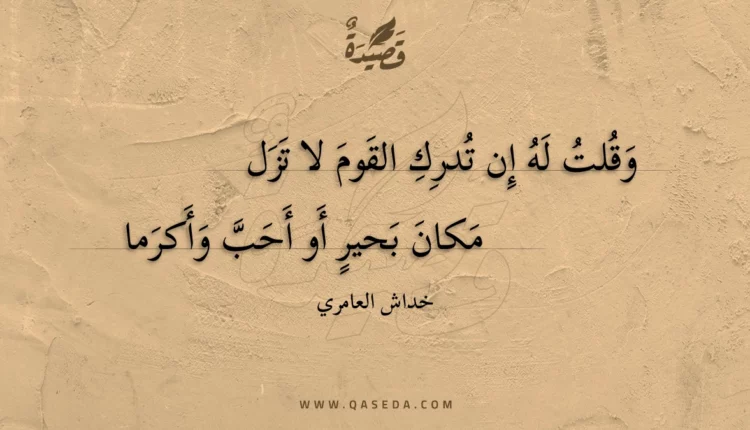 قَصِيْدَةٌ
وَقُلتُ لَهُ إِن تُدرِكِ القَومَ لا تَزَل
مَكانَ بَحيرٍ أَو أَحَبَّ وَأَكرَما
خداش العامري
WWW.QASEDA.COM